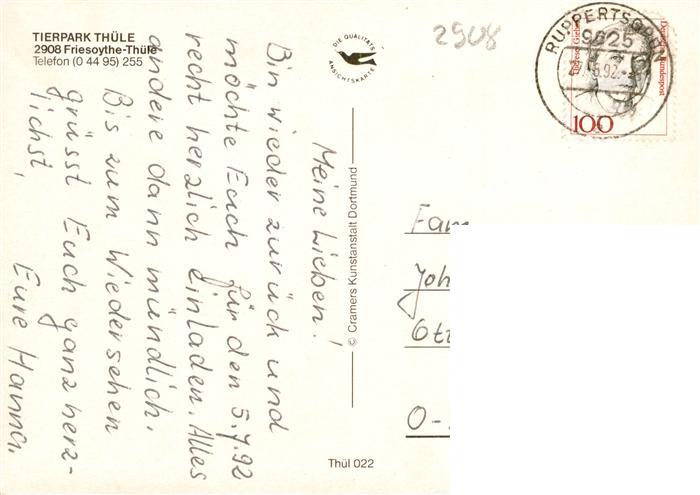 TIERPARK THÜLE
2908 Friesoythe-Thüle
Telefon (0 44 95) 255
DIE QUALITÄTS
ANSICHTSKARTE
2908
RUPPERTSGRÜN
9625
.6.92.
Therese Giehse
Deutsche Bundespost
100
Meine Lieben!
Bin wieder zurück und
möchte Euch für den 5.7.92
recht herzlich einladen. Alles
andere dann mündlich.
Bis zum Wiedersehen
grüsst Euch ganz herz-
lichst,
Eure Hanna.
© Cramers Kunstanstalt Dortmund
Fam
Joh
O-
Thül 022